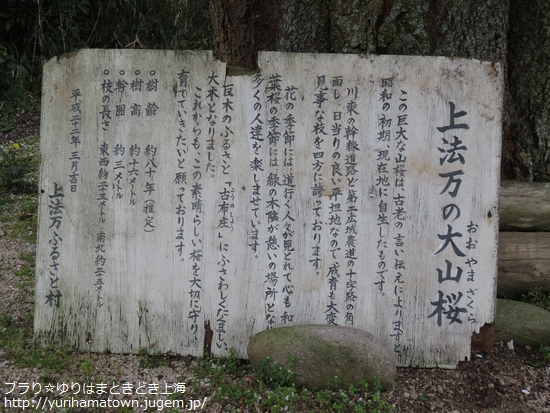 上法万の大山桜
おおやまざくら
この巨大な山桜は、古老の言い伝えによりますと、
昭和の初期、現在地に自生したものです。
川東の幹線道路と第二広域農道の十字路の角に
面し、日当りの良い平坦地なので成育も大変
見事な枝を四方に誇っております。
花の季節には道行く人々が見とれて心も和
葉桜の季節には緑の木陰が憩いの場所とな
多くの人達を楽しませています。
巨木のふるさと「古布庄」にふさわしくたましい、
大木となりました。
これからも、この素晴らしい桜を大切に守り、
育てていきたいと願っております。
◎樹齢 約八十年(推定)
◎樹高 約十六メートル
◎幹囲 約二メートル
◎枝の長さ 東西約二十五メートル 南北約二十五メートル
平成二十二年三月吉日
上法万ふるさと村
ブラリ☆ゆりはまときどき上海
http://yurihamatown.jugem.jp/